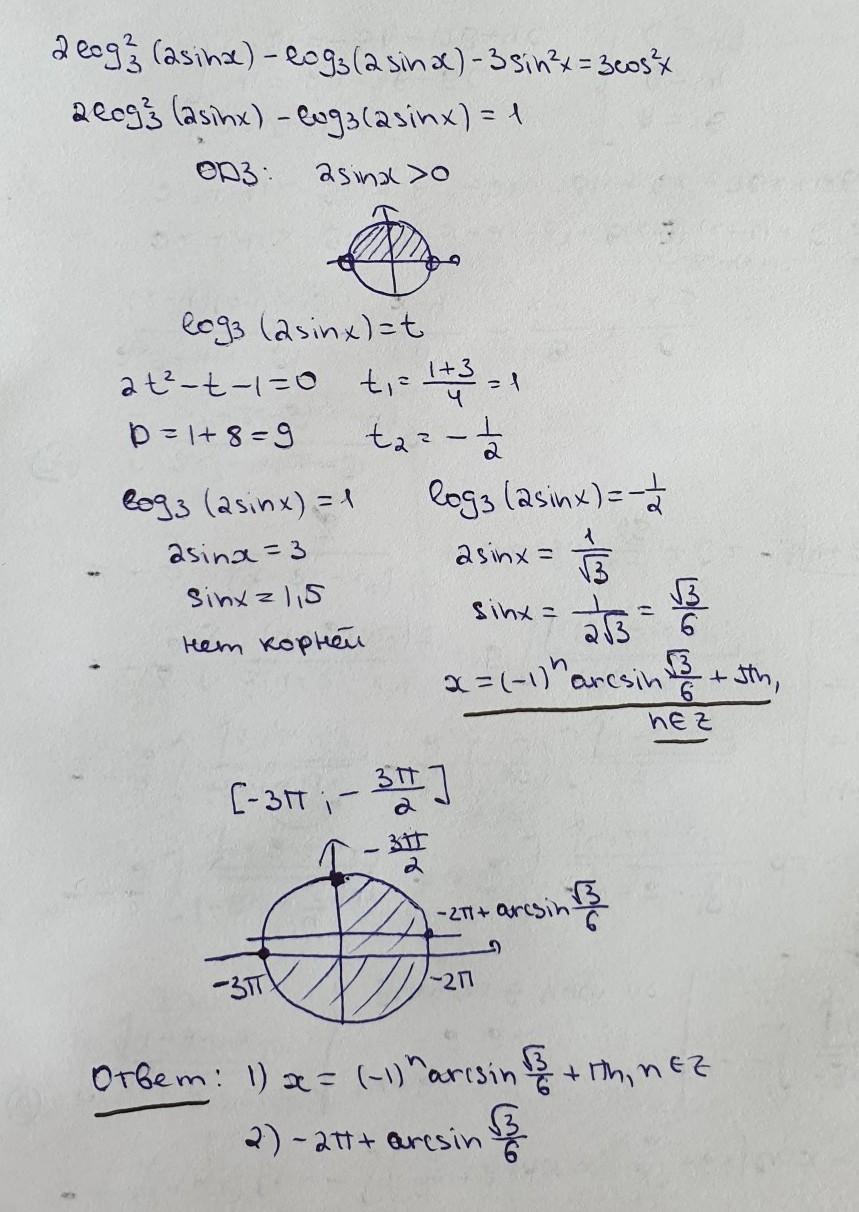 2log₃²(2sinx) - log₃(2sinx) - 3sin²x = 3cos²x
2log₃²(2sinx) - log₃(2sinx) = 1
ОДЗ: 2sinx > 0
log₃(2sinx) = t
2t² - t - 1 = 0 t₁ = (1+3)/4 = 1
D = 1 + 8 = 9 t₂ = -1/2
log₃(2sinx) = 1 log₃(2sinx) = -1/2
2sinx = 3 2sinx = 1/√3
sinx = 1,5 sinx = 1/(2√3) = √3/6
нет корней
x = (-1)ⁿ arcsin √3/6 + πn,
n∈Z
[-3π; -3π/2]
-3π/2
-2π + arcsin √3/6
-3π -2π
Ответ: 1) x = (-1)ⁿ arcsin √3/6 + πn, n∈Z
2) -2π + arcsin √3/6